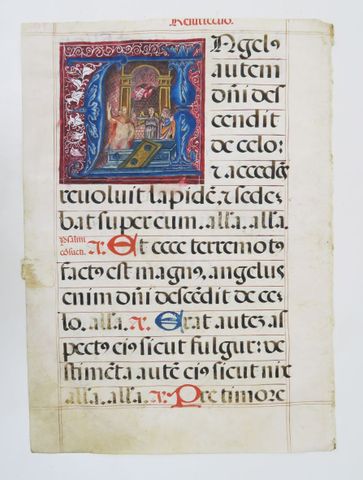 Resurrectio.
Ngelꝰ
autem
dñi des
cendit
de celo:
⁊ accedẽs
reuoluit lapidẽ, ⁊ sede⸗
bat super eum. alľa. alľa.
Psalmi cõsueti. A. Et ecce terremotꝰ
factꝰ est magnꝰ, angelus
enim dñi descẽdit de ce⸗
lo. alľa. A. Erat autez as
pectꝰ eiꝰ sicut fulgur: ve⸗
stimẽta autẽ eiꝰ sicut nix
alľa. alľa. A. Pre timore